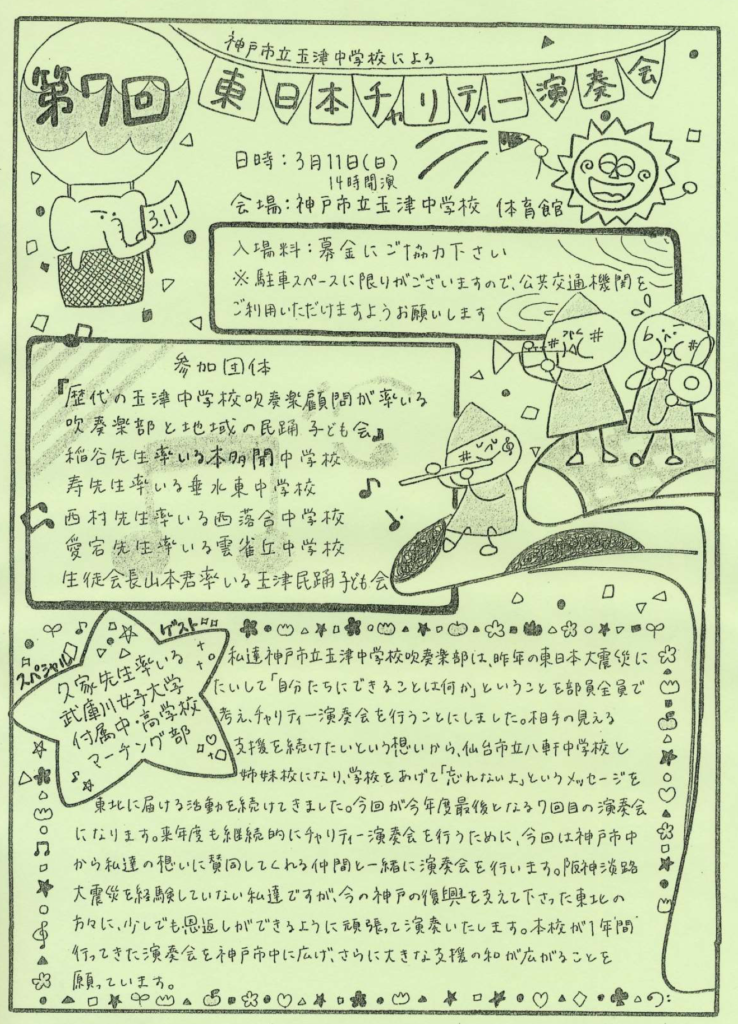 神戸市立玉津中学校による
第7回
東日本チャリティー演奏会
日時：3月11日(日)
14時開演
3.11
会場：神戸市立玉津中学校 体育館
入場料：募金にご協力下さい
※駐車スペースに限りがございますので、公共交通機関を
ご利用いただけますようお願いします
参加団体
『歴代の玉津中学校吹奏楽顧問が率いる
吹奏楽部と地域の民踊子ども会』
稲谷先生率いる本多聞中学校
寿先生率いる垂水東中学校
西村先生率いる西落合中学校
愛宕先生率いる雲雀丘中学校
生徒会長山本君率いる玉津民踊子ども会
スペシャル
ゲスト
久家先生率いる
武庫川女子大学
付属中・高学校
マーチング部
私達神戸市立玉津中学校吹奏楽部は、昨年の東日本大震災に
たいして「自分たちにできることは何か」ということを部員全員で
考え、チャリティー演奏会を行うことにしました。相手の見える
支援を続けたいという想いから、仙台市立八軒中学校と
姉妹校になり、学校をあげて「忘れないよ」というメッセージを
東北に届ける活動を続けてきました。今回が今年度最後となる7回目の演奏会
になります。来年度も継続的にチャリティー演奏会を行うために、今回は神戸市中
から私達の想いに賛同してくれる仲間と一緒に演奏会を行います。阪神淡路
大震災を経験していない私達ですが、今の神戸の復興を支えて下さった東北の
方々に、少しでも恩返しができるように頑張って演奏いたします。本校が1年間
行ってきた演奏会を神戸市中に広げ、さらに大きな支援の和が広がることを
願っています。